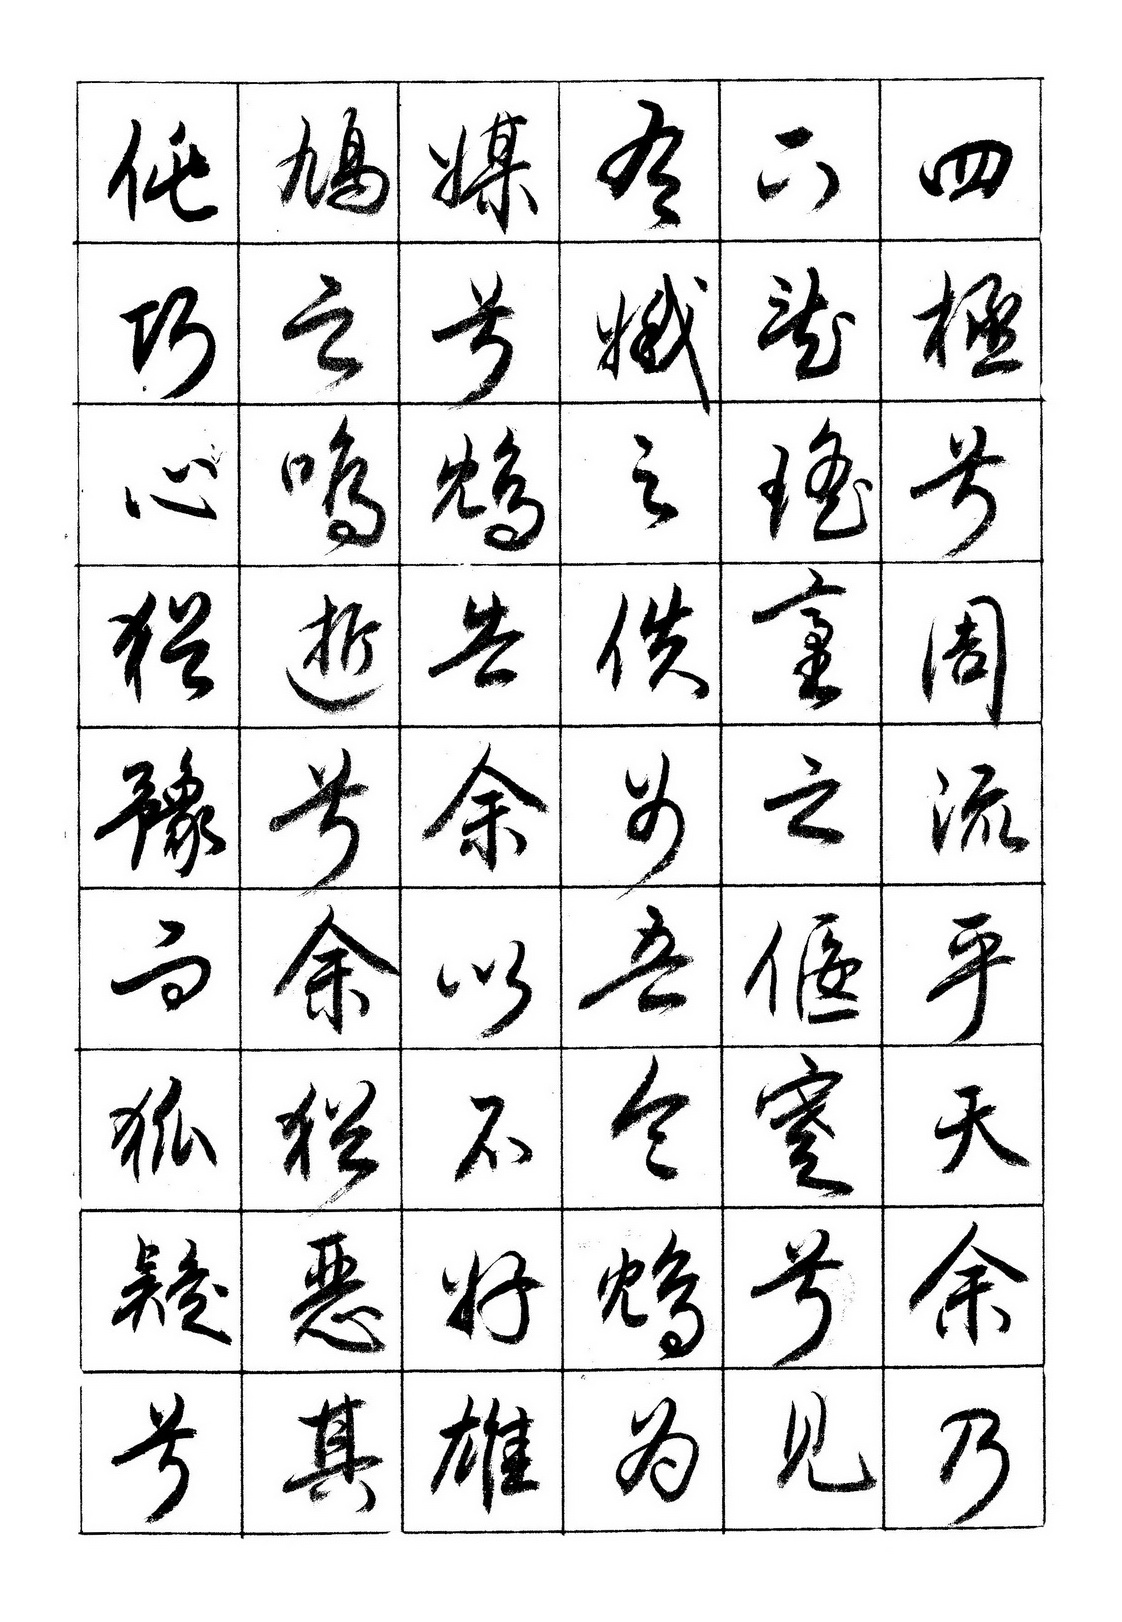 四極兮周流乎天余乃
下望瑤臺之偃蹇兮見
有娀之佚女吾令鴆為
媒兮鴆告余以不好雄
鳩之鳴逝兮余猶惡其
佻巧心猶豫而狐疑兮